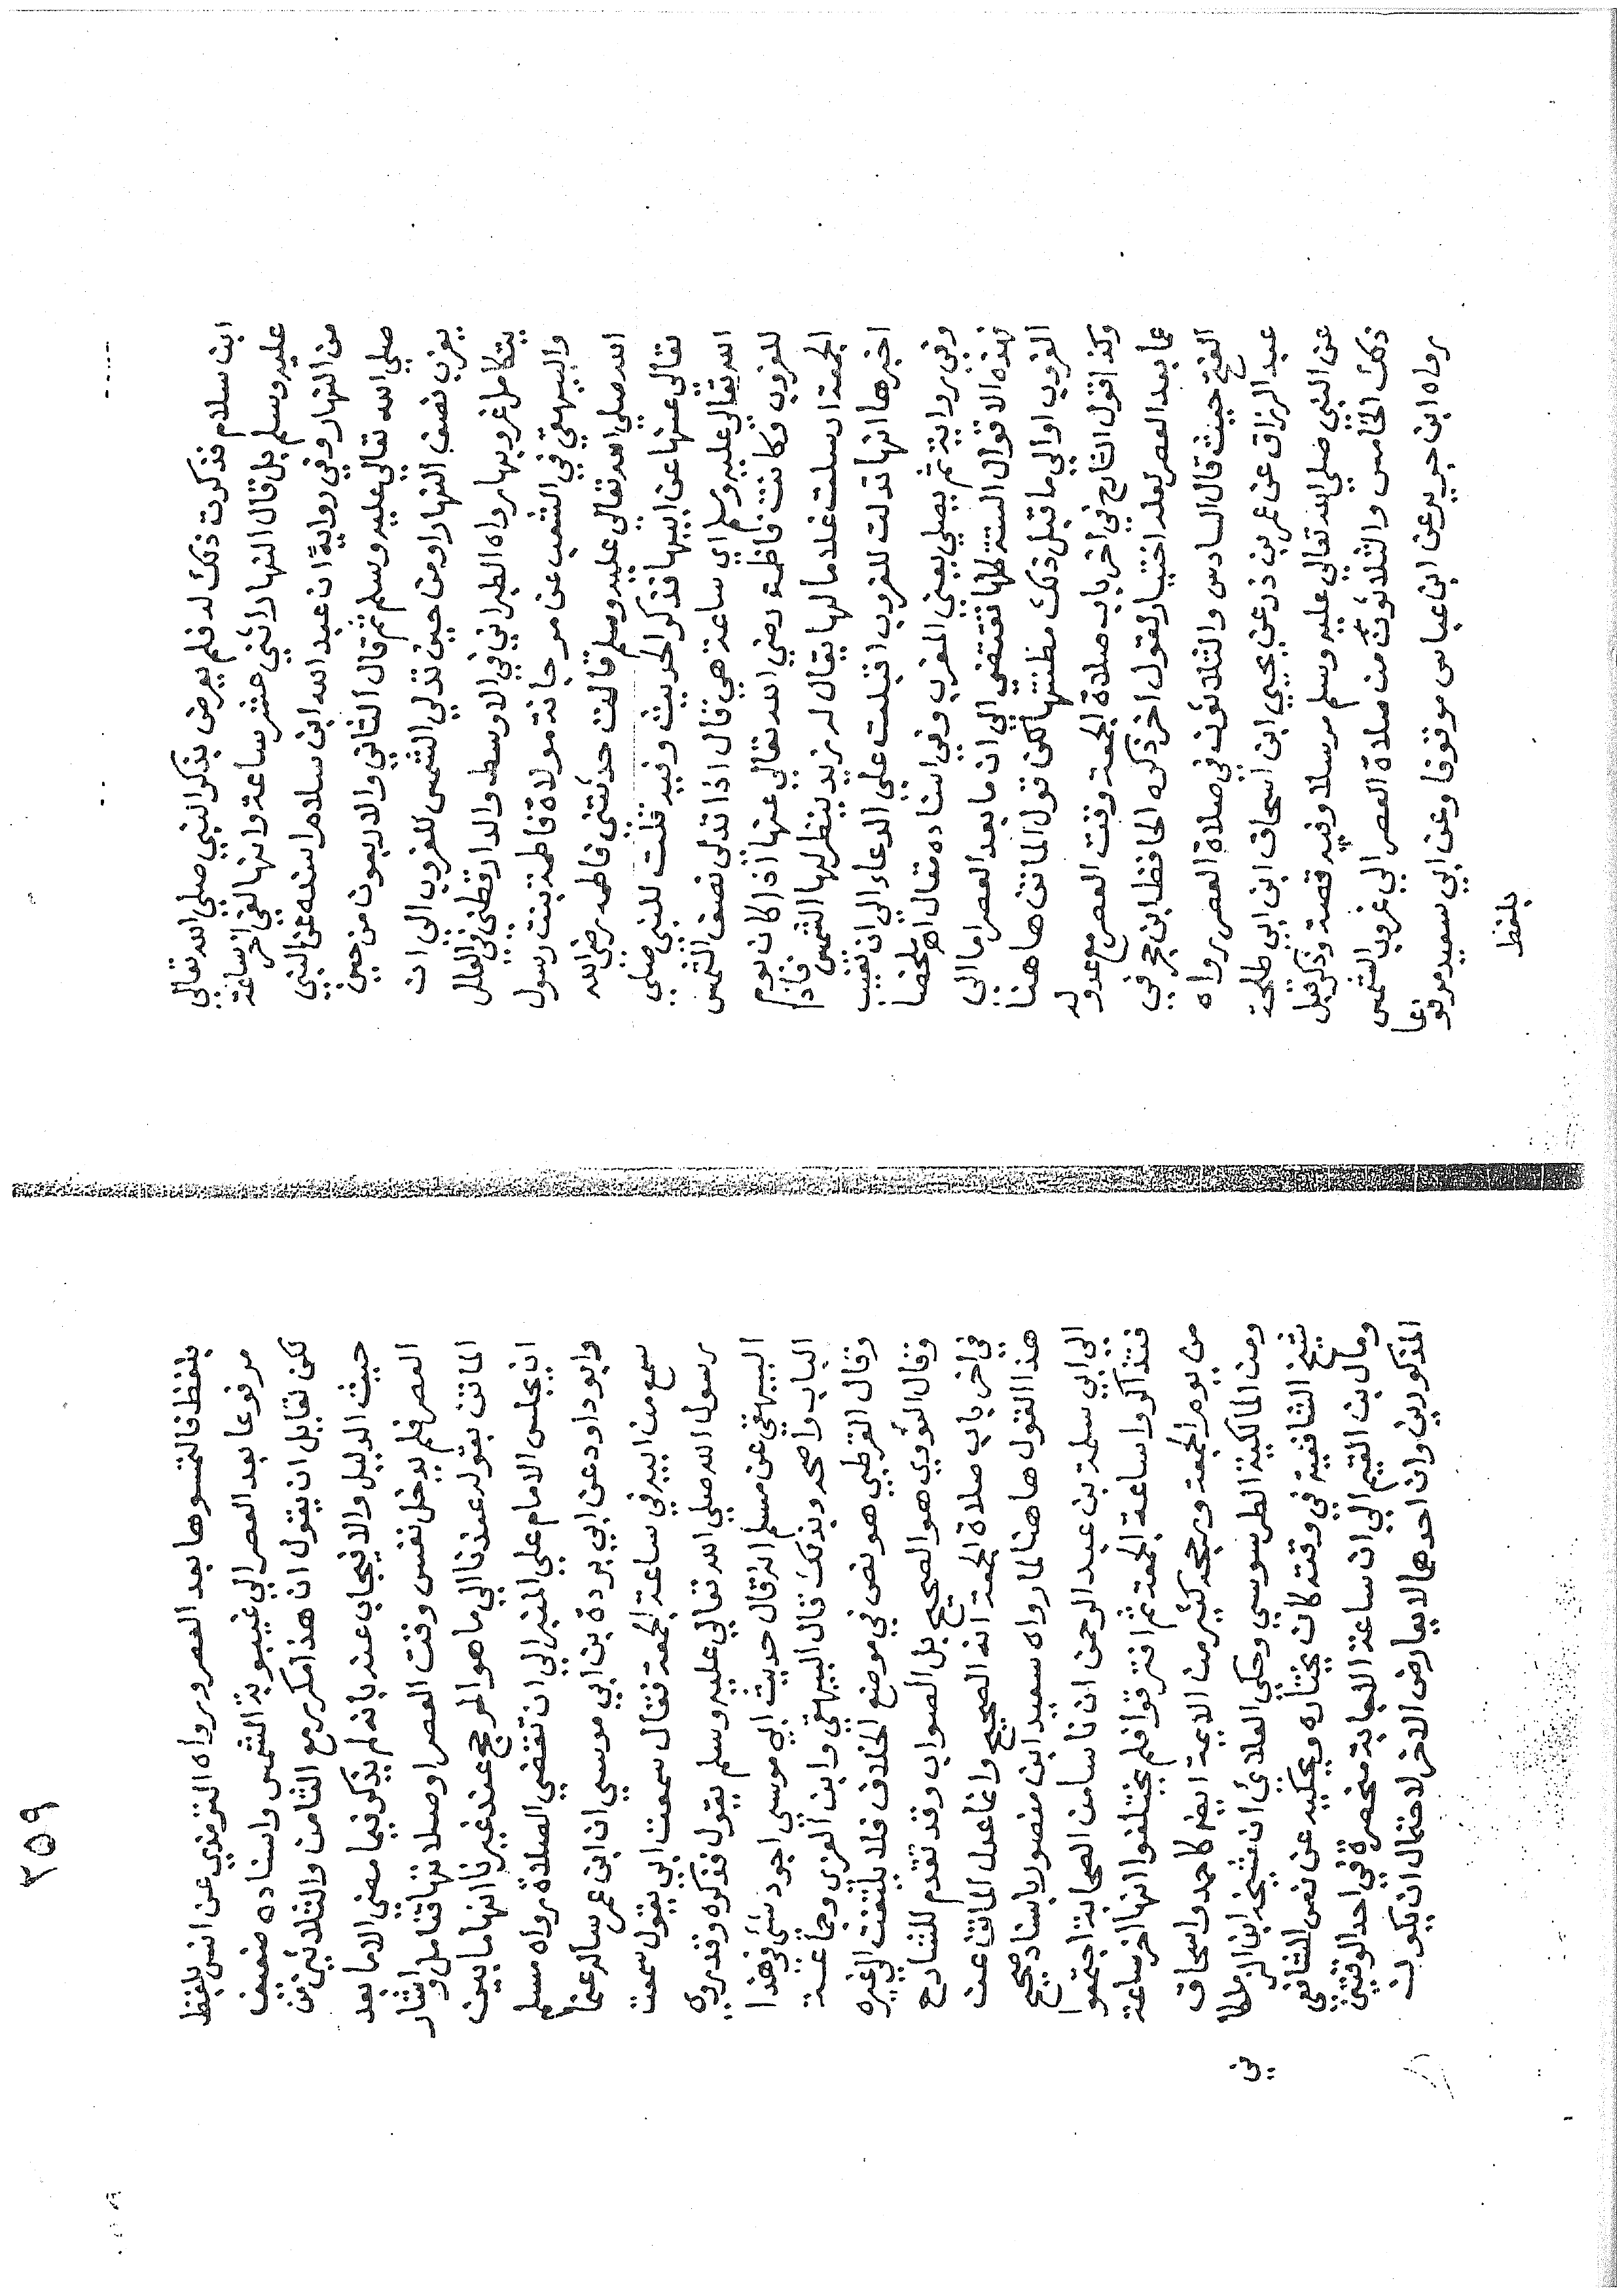 ابن سلام فذكرت ذلك له فلم يعرض بذكر النبي صلي الله تعالي
عليه وسلم بل قال النهار اثني عشر ساعة وانها لفي اخر ساعة
من النهار وفي رواية ان عبد الله ابن سلام اسنده عن النبي
صلي الله تعالي عليه وسلم ثم قال الثاني والاربعون من حين
يغرب نصف النهار او من حين تدلي الشمس للغروب الي ان
يتكامل غروبها رواه الطبراني في الاوسط والدارقطني في العلل
والبيهقي في الشعب عن مرجانة مولاة فاطمة بنت رسول
الله صلي الله تعالي عليه وسلم قالت حدثتني فاطمه رضي الله
تعالي عنها عن ابيها فذكر الحديث وفيه قلت للنبي صلي
الله تعالي عليه وسلم اي ساعة هي قال اذا تدلى نصف الشمس
للغروب وكانت فاطمة رضي الله تعالي عنها اذا كان يوم
الجمعة ارسلت غلاما لها يقال له زيد ينظر لها الشمس فاذا
اخبرها انها تدلت للغروب اقبلت علي الدعاء الي ان تغيب
وفي رواية ثم يصلي يعني المغرب وفي اسناده مقال اهـ ملخصا
فهذه الاقوال الستة كلها تقتضي الي ان ما بعد العصر اما الي
الغروب او الي ما قبل ذلك مظنتها لكن قول الماتن هاهنا
وكذا قول الشارح في اخر باب صلاة الجمعة وقت العصر مع عدوله
عما بعد العصر لعله اختيار لقول اخر ذكره الحافظ ابن حجر في
الفتح حيث قال السادس والثلاثون في صلاة العصر رواه
عبد الرزاق عن عمر بن ذر عن يحيي ابن اسحاق ابن ابي طلحة
عن النبي صلي الله تعالي عليه وسلم مرسلا وفيه قصة وذكر قبل
ذلك الخامس والثلاثون من صلاة العصر الي غروب الشمس
رواه ابن جرير عن ابن عباس موقوفا وعن ابي سعيد مرفوعا
بلفظ
٣٥٩
بلفظ فالتمسوها بعد العصر ورواه الترمذي عن انس بلفظ
مرفوعا بعد العصر الي غيبوبة الشمس واسناده ضعيف
لكن لقايل ان يقول ان هذا مكرر مع الثامن والثلاثين من
حيث الدليل والايجاب عنه بانه لم يذكر فيما مضي الا ما بعد
العصر فلم يدخل نفس وقت العصر او صلاتها فتامل واشار
الماتن بقوله عندنا الي ما هو المرجح عند غيرنا انها ما بين
ان يجلس الامام علي المنبر الي ان تقضي الصلاة رواه مسلم
وابو داود عن ابي بردة بن ابي موسي ان ابن عمر ساله عما
سمع من ابيه في ساعة الجمعة فقال سمعت ابي يقول سمعت
رسول الله صلي الله تعالي عليه وسلم يقول فذكره وقد روي
البيهقي عن مسلم انه قال حديث ابي موسي اجود شئ في هذا
الباب واصحه وبذلك قال البيهقي وابن العربي وجماعة
وقال القرطبي هو نص في موضع الخلاف فلا يلتفت الي غيره
وقال النووي هو الصحيح بل الصواب وقد تقدم للشارح
في اخر باب صلاة الجمعة انه الصحيح وانما عدل الماتن عن
هذا القول هاهنا لما رواه سعيد ابن منصور باسناد صحيح
الي ابي سلمة بن عبد الرحمن ان ناسا من الصحابة اجتمعوا
فتذاكروا ساعة الجمعة ثم افترقوا فلم يختلفوا انها اخر ساعة
من يوم الجمعة ورجحه كثير من الايمة ايضا كاحمد واسحاق
ومن المالكية الطرسوسي وحكي العلائي ان شيخه ابن الزملكاني
شيخ الشافعية في وقته كان يختاره ويحكيه عن نص الشافعي
ومال بن القيم الي ان ساعة الاجابة منحصرة في احد الوقتين
المذكورين وان احدهما لا يعارض الاخر لاحتمال ان يكون